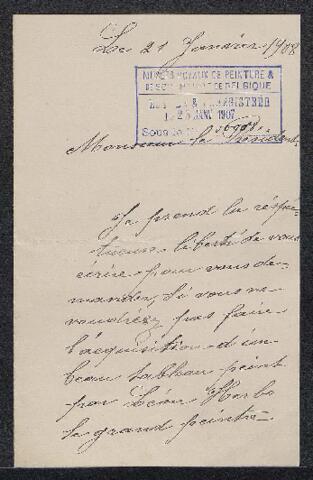 Le 21 Janvier 1908
MUSÉES ROYAUX DE PEINTURE &
DE SCULPTURE DE BELGIQUE
REÇU & ENREGISTRÉ
LE 25 JANV. 1907
Sous le N°
Monsieur le Président.
Je prend la respec-
tueuse liberté de vous
écrire pour vous de-
mander, si vous ne
voudriez pas faire
l'acquisition d'un
beau tableau peint
par Léon Herbo
le grand peintre